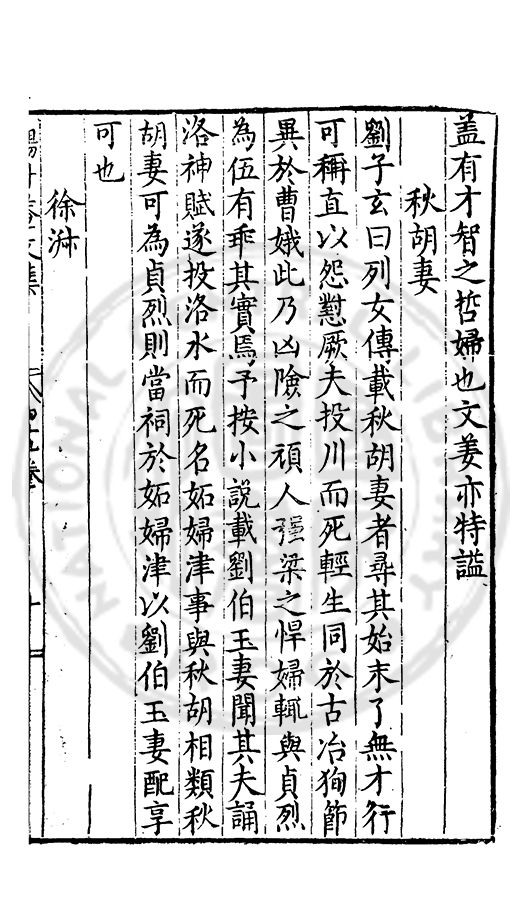 盖有才智之哲婦也文姜亦特謚
秋胡妻
劉子玄曰列女傳載秋胡妻者尋其始末了無才行
可稱直以怨懟厥夫投川而死輕生同於古冶狥節
異於曹娥此乃凶險之頑人彊梁之悍婦輒與貞烈
為伍有乖其實焉予按小說載劉伯玉妻聞其夫誦
洛神賦遂投洛水而死名妬婦津事與秋胡相類秋
胡妻可為貞烈則當祠於妬婦津以劉伯玉妻配享
可也
徐淑